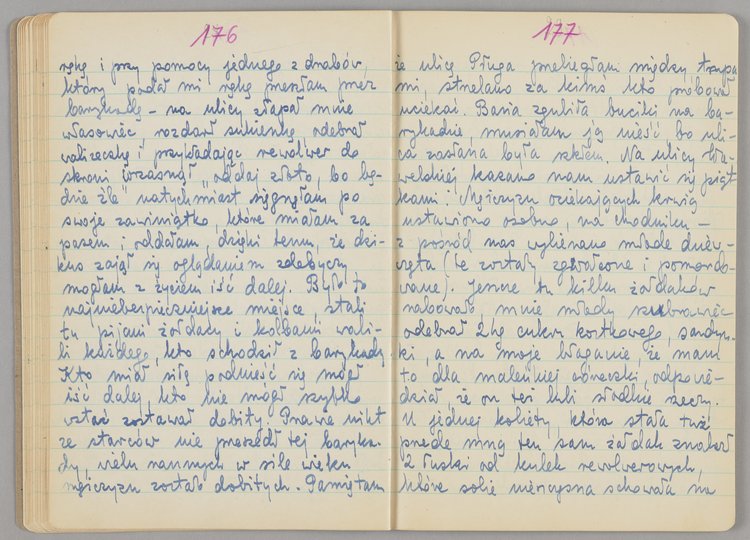 176
rękę i przy pomocy jednego z drabów,
który podał mi rękę przeszłam przez
barykadę – na ulicy złapał mnie
własowiec rozdarł sukienkę, odebrał
walizeczkę i przykładając rewolwer do
skroni wrzasnął "oddaj złoto, bo bę-
dzie źle" natychmiast sięgnęłam po
swoje zawiniątko, które miałam za
pasem i oddałam, dzięki temu, że dzi-
kus zajął się oglądaniem zdobyczy
mogłam z życiem iść dalej. Było to
najniebezpieczniejsze miejsce, stali
tu pijani żołdacy i kolbami wali-
li każdego, kto schodził z barykady
Kto miał siłę podnieść się mógł
iść dalej, kto nie mógł szybko
wstać zostawał dobity. Prawie nikt
ze starców nie przeszedł tej baryka-
dy, wielu rannych w sile wieku
mężczyzn zostało dobitych. Pamiętam
177
że ulicę Pługa przebiegłam między trupa
mi, strzelano za kimś kto probował
uciekać. Basia zgubiła buciki na ba-
rykadzie, musiałam ją nieść bo uli-
ca zasłana była szkłem. Na ulicy Wa-
welskiej kazano nam ustawić się piąt
kami. Mężczyzn ociekających krwią
ustawiono osobno, na chodniku –
z pośród nas wybierano młode dziew-
częta (te zostały zgwałcone i pomordo-
wane). Jeszcze tu kilku żołdaków
rabowało, mnie młody
odebrał 2 kg cukru kostkowego, sardyn-
ki, a na moje błaganie, że mam
to dla maleńkiej córeczki, odpowie-
dział, że on też lubi słodkie rzeczy.
U jednej kobiety, która stała tuż
przede mną ten sam żołdak znalazł
2 łuski od kulek rewolwerowych,
które sobie mężczyzna schowała na